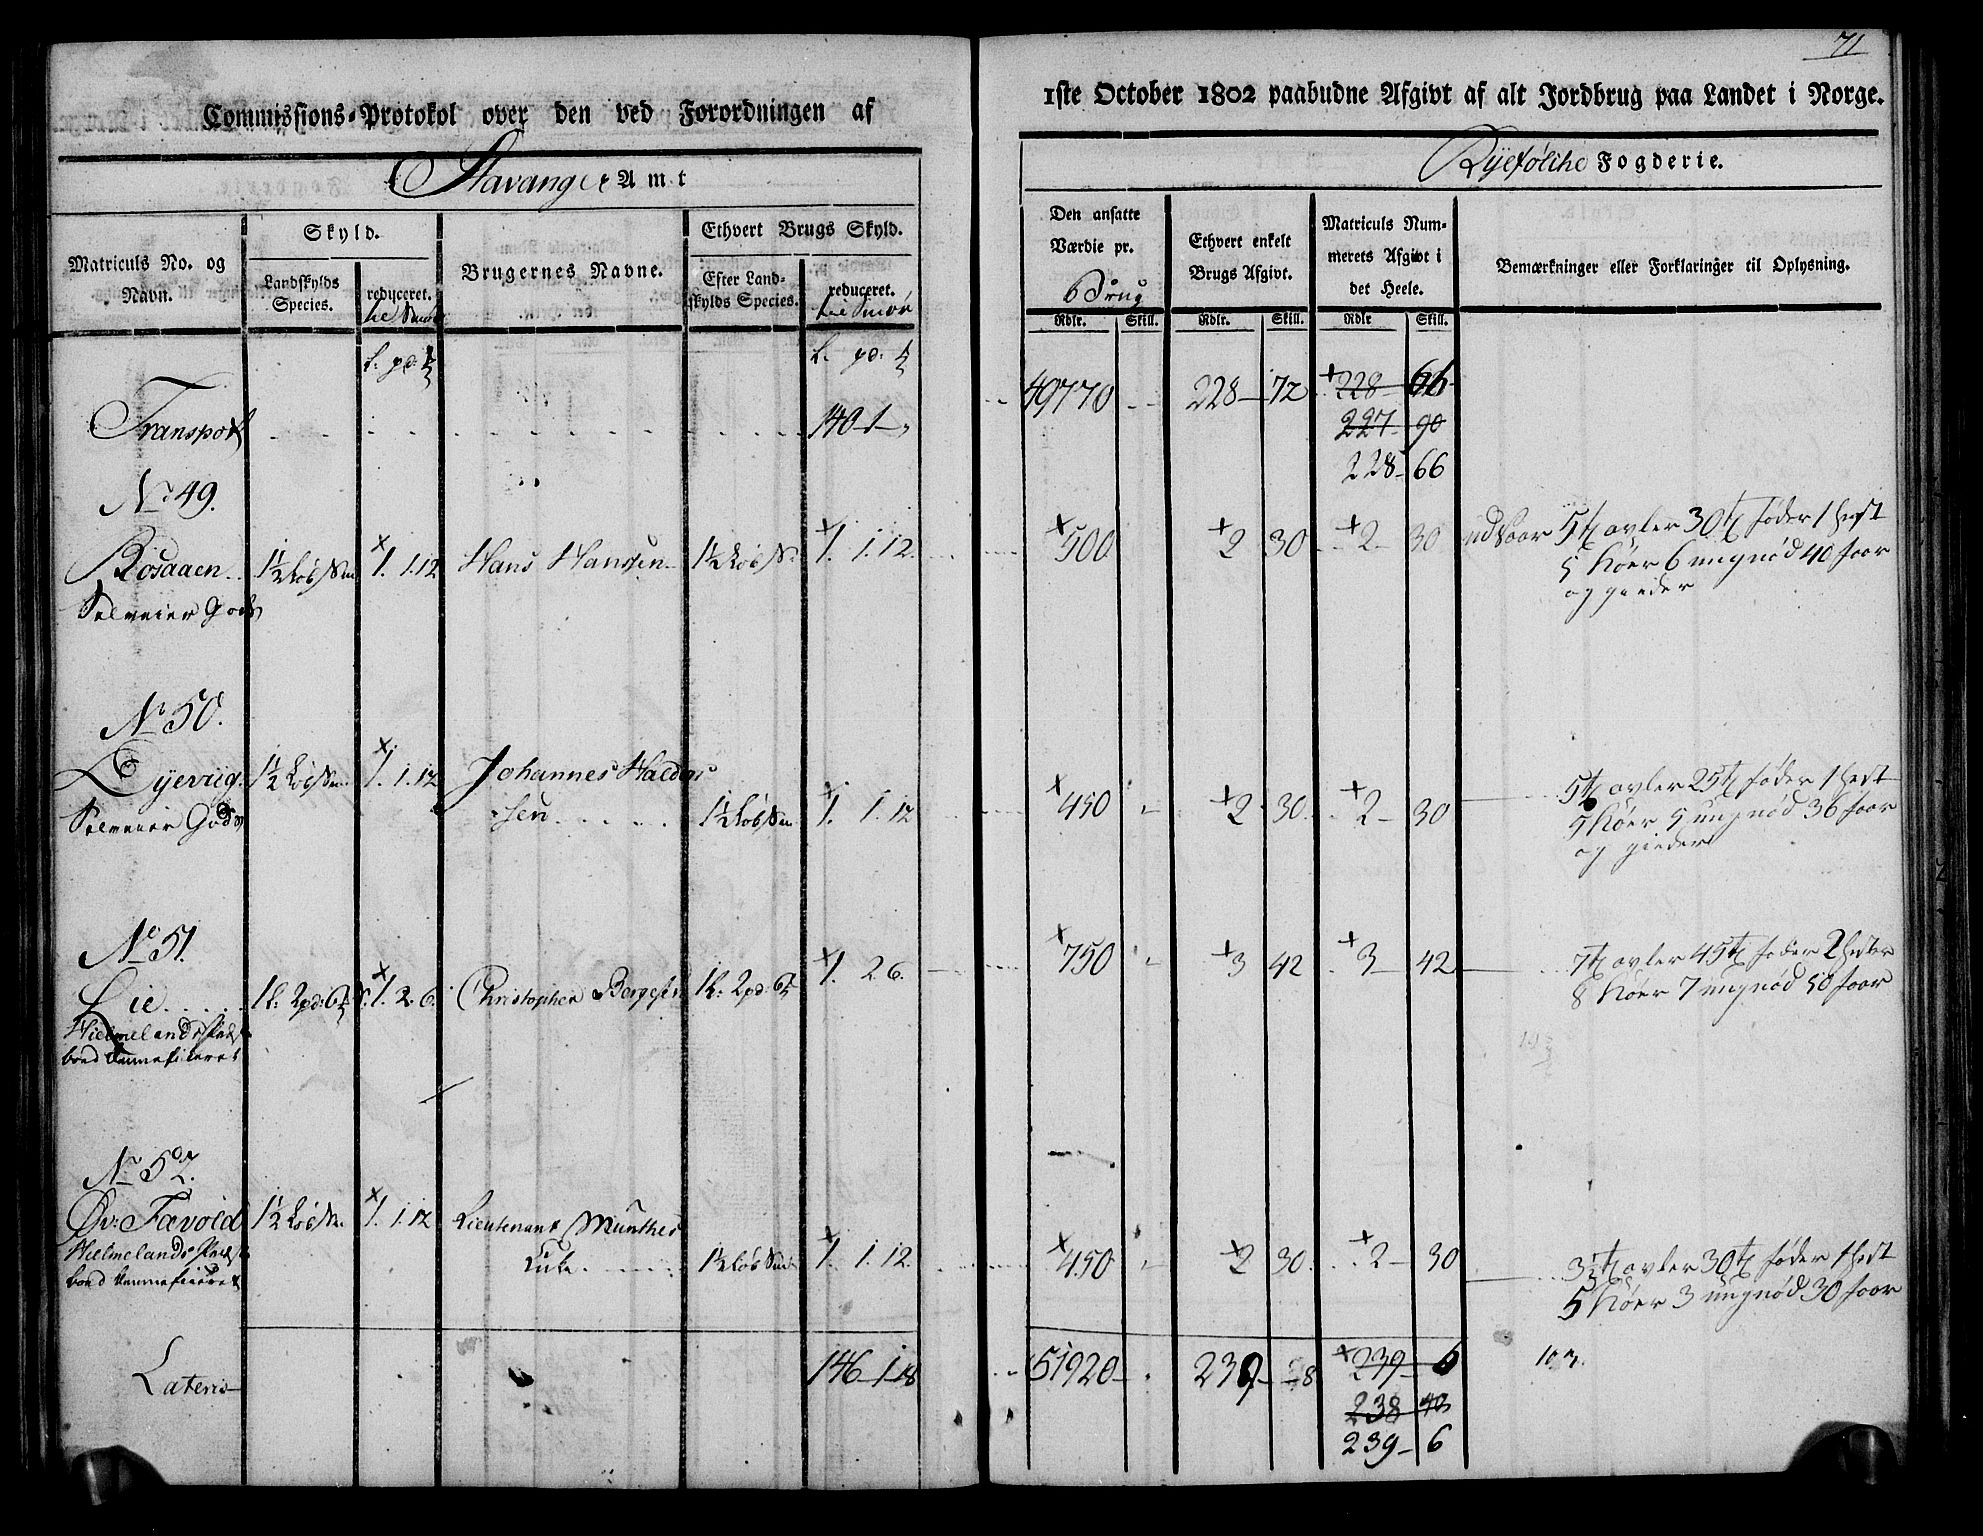 71
Commissions-Protokol over den ved Forordningen af
1ste October 1802 paabudne Afgivt af alt Jordbrug paa Landet i Norge.
Stavanger Amt
Ryefølche Fogderie.
Matriculs No. og Navn.
Skyld.
Landskylds Species.
reduceret.
Brugernes Navne.
Ethvert Brugs Skyld.
Efter Landskylds Species.
reduceret.
Den ansatte Værdie pr. Brug
Ethvert enkelt Brugs Afgivt.
Matriculs Nummerets Afgivt i det Heele.
Bemærkninger eller Forklaringer til Oplysning.
Rdlr. Skill. Rdlr. Skill. Rdlr Skill.
Transport 140 1 „ 49770 228 72 228 66
227 90
228 66
No 49.
Rosaaen 1½ Løb Sm 1. 1. 12 Hans Hansen 1½ Løb Sm 1. 1. 12. 500 2 30 2 30 udsaar 5 t avler 30 t føder 1 hest
5 Køer 6 ungnød 40 faar
og gieder
Selveier Gods
No 50.
Eyeviig 1½ Løb Sm. 1. 1. 12 Johannes Haldor
sen 1½ Løb Sm 1. 1. 12 450 2 30. 2 30 5 t avler 25 t føder 1 hest
5 Køer 5 ungnød 36 faar
og gieder
Selveier Gods
No 51.
Lie 1 l: 2 pd: 6 1. 2. 6. Christopher Borgesen 1 l: 2 pd: 6 1. 2 6. 750 3 42 3 42 7 t avler 45 t føder 2 hester
8 Køer 7 ungnød 50 faar
Hielmelands Præste
boed beneficeret
No 52.
Øv: Fævold 1½ Løb Sm. 1. 1. 12 Lieutenant Munthes
Enke 1½ Løb Sm 1. 1. 12. 450 2 30. 2 30 3½ t avler 30 t føder 1 hest
5 Køer 3 ungnød 30 faar
Hielmelands Præste
boed beneficeret
Lateris 146 1 18 51920 239 239 6
238 40
239 6